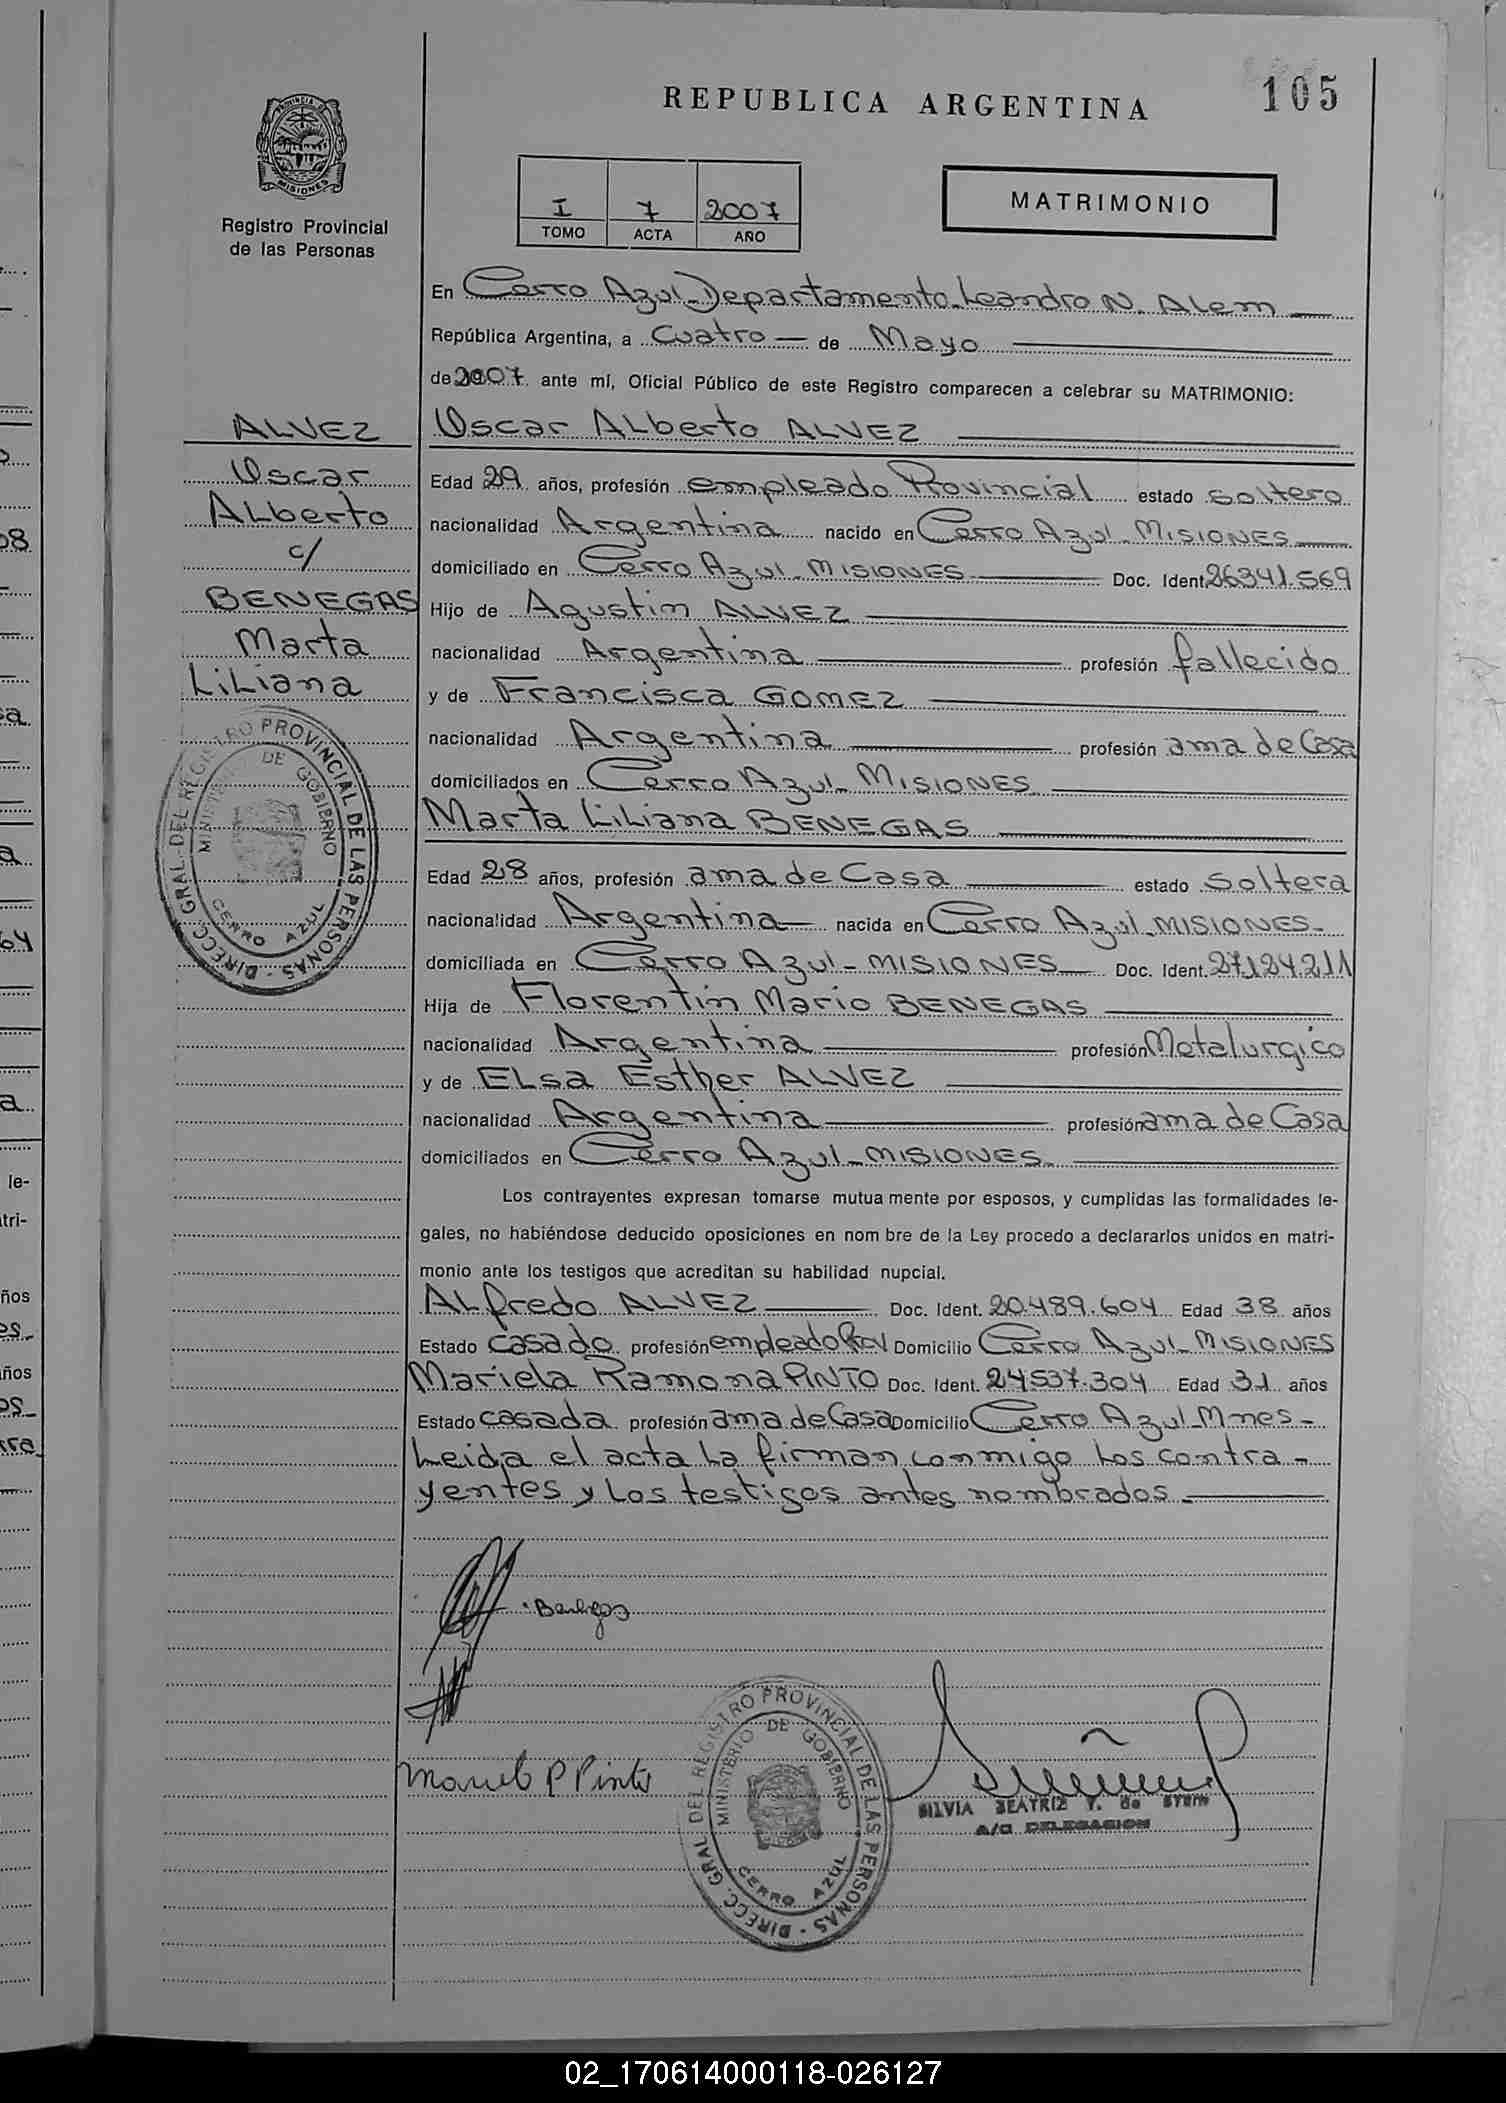 REPUBLICA ARGENTINA
105
PROVINCIA DE
MISIONES
Registro Provincial
de las Personas
I 7 2007
TOMO ACTA AÑO
MATRIMONIO
En Cerro Azul-Departamento-Leandro N. Alem
República Argentina, a Cuatro — de Mayo
de 2007 ante mí, Oficial Público de este Registro comparecen a celebrar su MATRIMONIO:
ALVEZ
Oscar
Alberto
c/
BENEGAS
Marta
Liliana
Oscar Alberto ALVEZ
Edad 29 años, profesión empleado Provincial estado soltero
nacionalidad Argentina nacido en Cerro Azul-MISIONES
domiciliado en Cerro Azul-MISIONES Doc. Ident. 26341.569
Hijo de Agustin ALVEZ
nacionalidad Argentina profesión fallecido
y de Francisca GOMEZ
nacionalidad Argentina profesión ama de Casa
domiciliados en Cerro Azul-MISIONES
Marta Liliana BENEGAS
Edad 28 años, profesión ama de Casa estado soltera
nacionalidad Argentina nacida en Cerro Azul-MISIONES-
domiciliada en Cerro Azul-MISIONES Doc. Ident. 27124.211
Hija de Florentin Mario BENEGAS
nacionalidad Argentina profesión Metalurgico
y de Elsa Esther ALVEZ
nacionalidad Argentina profesión ama de Casa
domiciliados en Cerro Azul-MISIONES-
Los contrayentes expresan tomarse mutua mente por esposos, y cumplidas las formalidades le-
gales, no habiéndose deducido oposiciones en nom bre de la Ley procedo a declararlos unidos en matri-
monio ante los testigos que acreditan su habilidad nupcial.
Alfredo ALVEZ Doc. Ident. 20.489.604 Edad 38 años
Estado casado profesión empleado Domicilio Cerro Azul-MISIONES
Mariela Ramona PINTO Doc. Ident. 24537.304 Edad 31 años
Estado casada profesión ama de Casa Domicilio Cerro Azul-Mnes-
Leida el acta la firman conmigo los contra-
yentes y los testigos antes nombrados.-
DIRECC. GRAL. DEL REGISTRO PROVINCIAL DE LAS PERSONAS -
MINISTERIO DE GOBIERNO
CERRO AZUL
DIRECC. GRAL. DEL REGISTRO PROVINCIAL DE LAS PERSONAS -
MINISTERIO DE GOBIERNO
CERRO AZUL
SILVIA BEATRIZ Y. de
A/C DELEGACION
le-
tri-
ños
ños
02_170614000118-026127